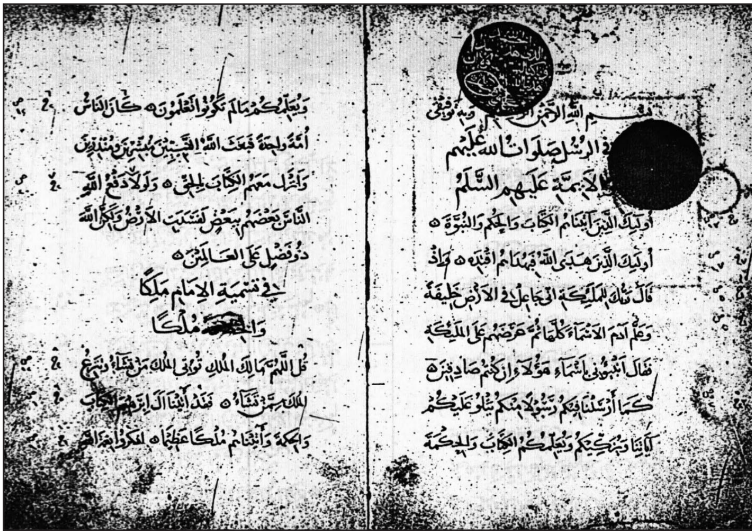 بسم الله الرحمن الرحيم وبه توفيقي
في الرسل صلوات الله عليهم
الأيمة عليهم السلم
أوليك الذين أتيناهم الكتاب والحكم والنبوة ه
أوليك الذين هدى الله فبهداهم اقتده ه وإذ
قال ربك للمليكة اني جاعل في الأرض خليفة
وعلم ادم الاسماء كلها ثم عرضهم على المليكة
فقال انبئوني باسماء هؤلاء ان كنتم صادقين ه
كما أرسلنا فيكم رسولا منكم يتلو عليكم
آياتنا ويزكيكم ويعلمكم الكتاب والحكمة
ويعلمكم ما لم تكونوا تعلمون ه كان الناس
أمة واحدة فبعث الله النبيين مبشرين ومنذرين
وانزل معهم الكتاب بالحق ه ولولا دفع الله
الناس بعضهم ببعض لفسدت الأرض ولكن الله
ذو فضل على العالمين ه
في تسمية الإمام ملكا
ملكا
قل اللهم مالك الملك تؤتي الملك من تشاء وتنزع
الملك ممن تشاء ه فقد أتينا آل إبرهيم الكتاب
والحكمة وأتيناهم ملكا عظيما ه